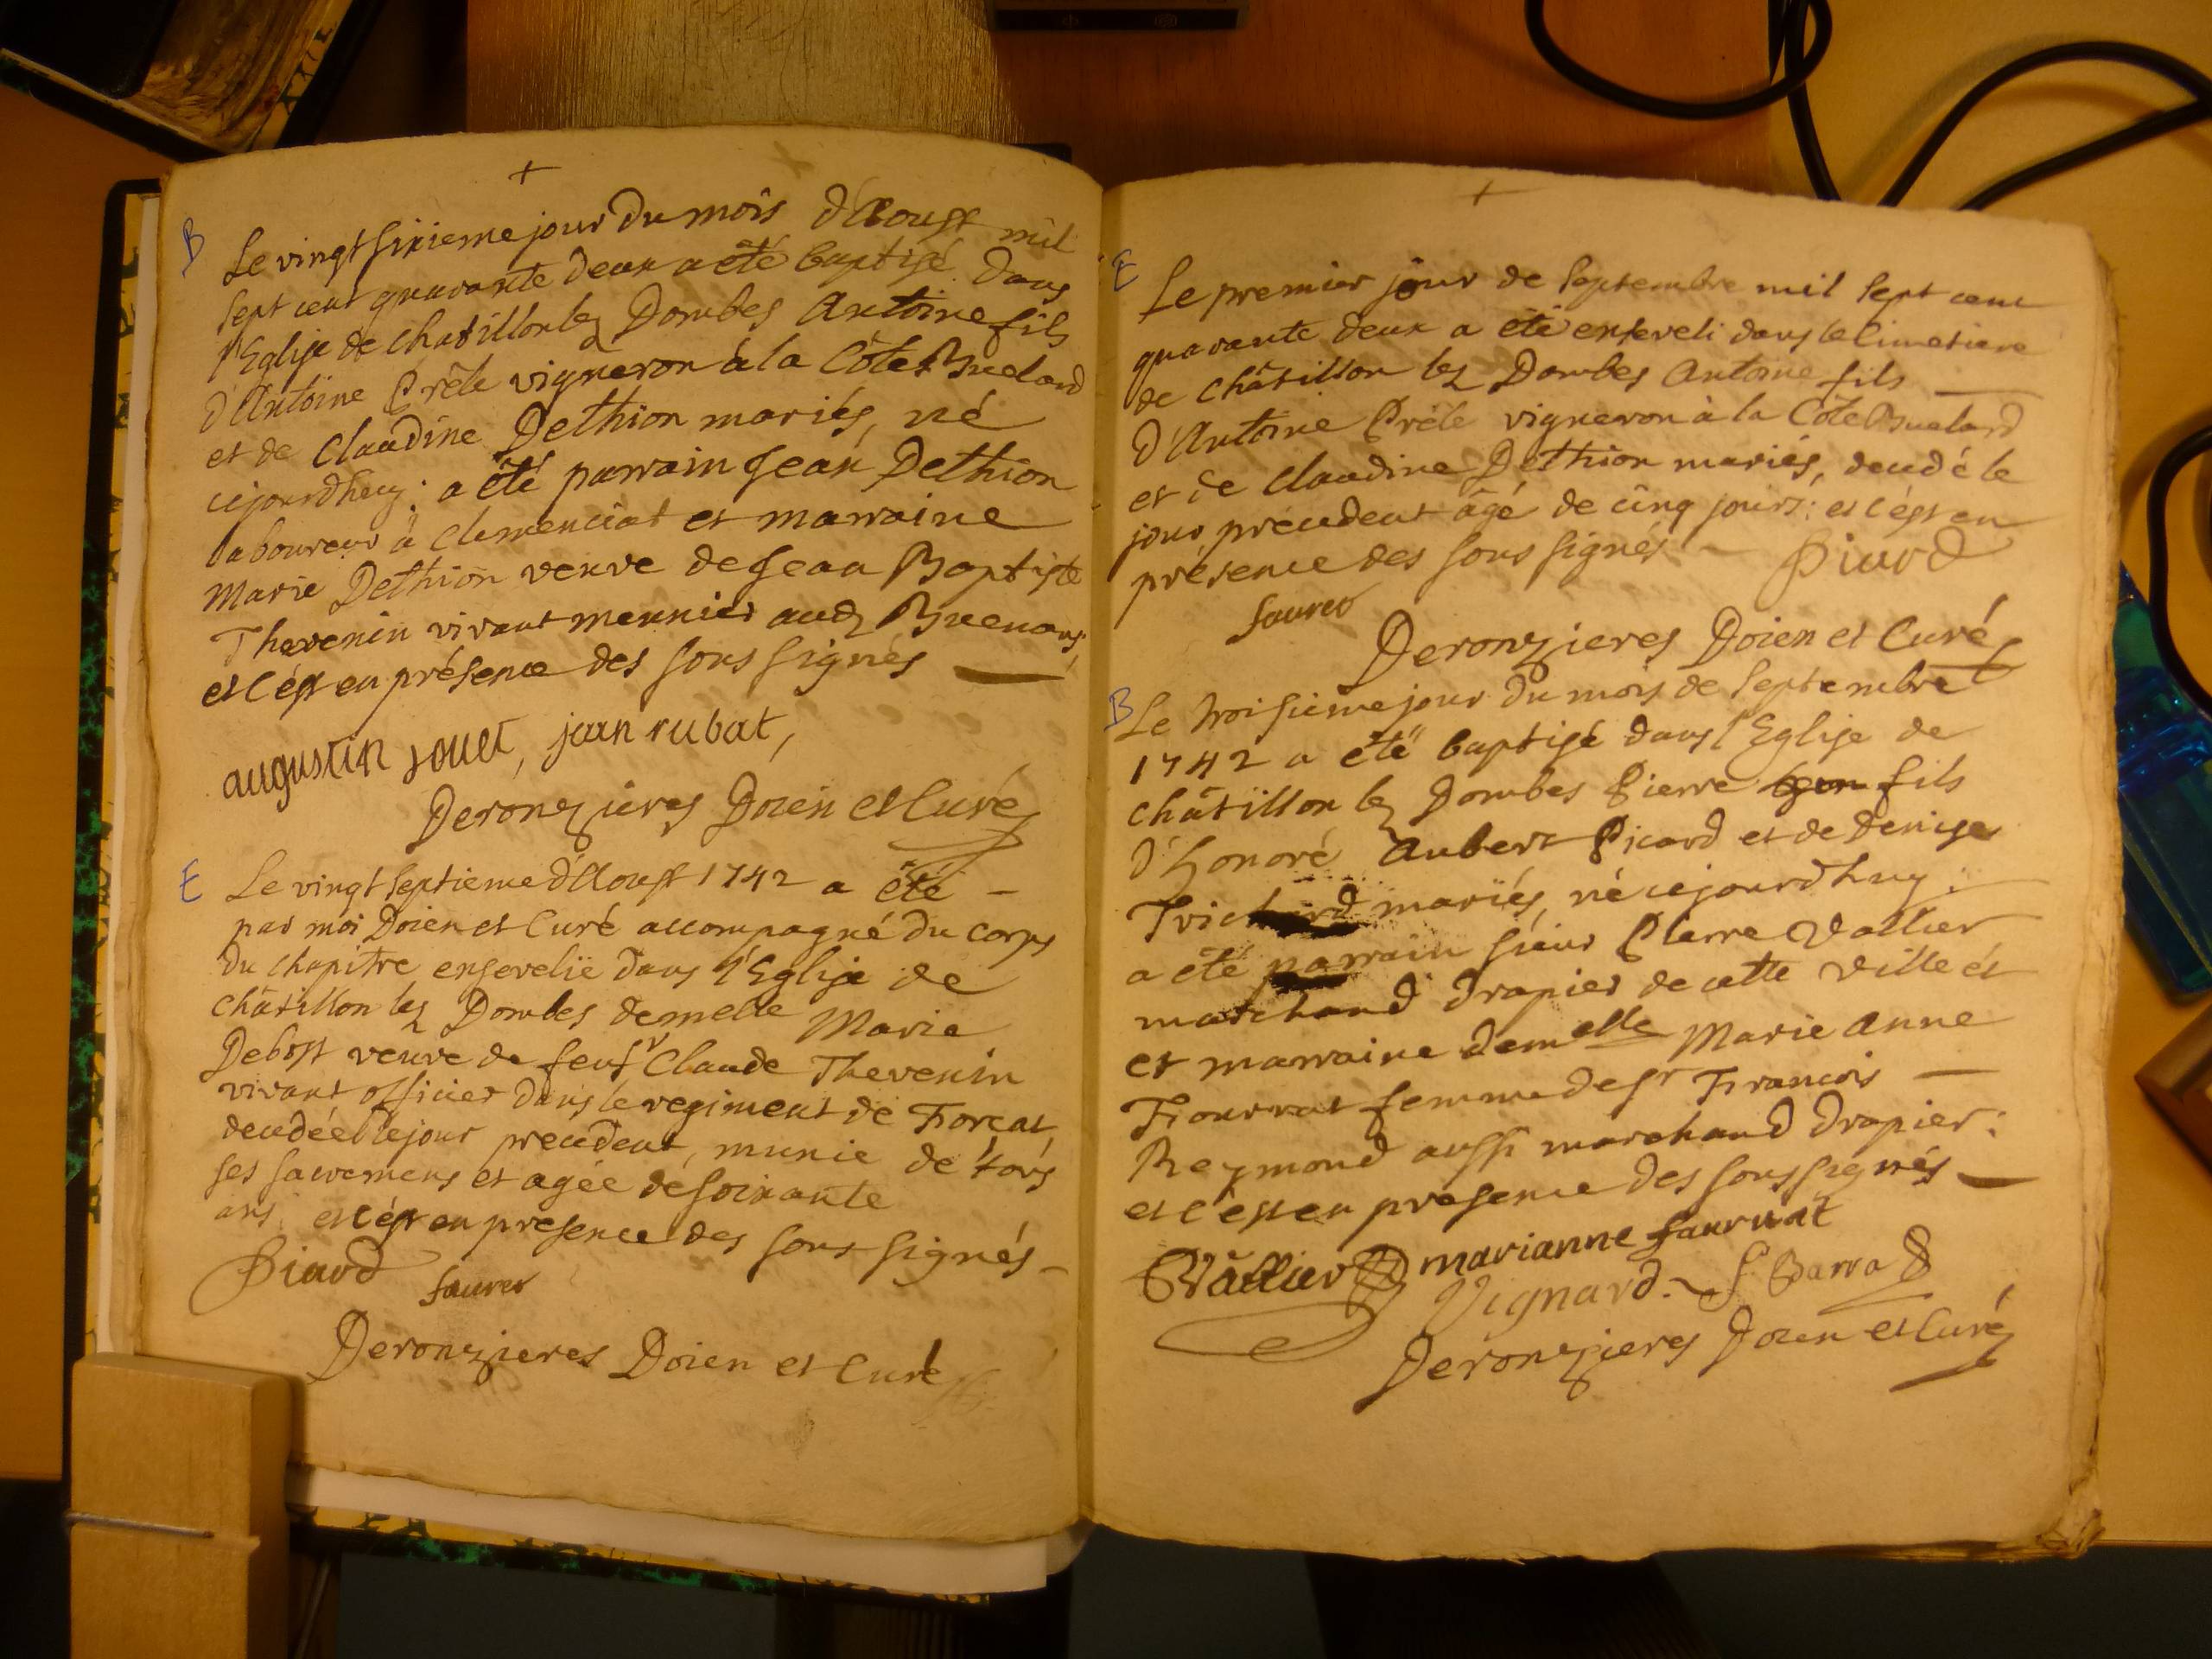 +
B
Le vingt sixieme jour du mois d'Aoust mil
sept cent quarante deux a été baptisé dans
l'Eglise de chatillon lez Dombes Antoine fils
d'Antoine Prêle vigneron à la Côte Buelard
et de Claudine Dethion mariés, né
cejourdhuy : a été parrain Jean Dethion
laboureur à Clemenciat et marraine
Marie Dethion veuve de Jean Baptiste
Thevenin vivant meunier audz Buenans,
et c'est en présence des sous signés —
augustin jouet, jean rubat,
Deronzieres Doien et Curé
E
Le vingt septieme d'Aoust 1742 a été –
par moi Doien et Curé accompagné du corps
du chapitre ensevelie dans l'Eglise de
châtillon lez Dombes demelle Marie
Debost veuve de feu Sr Claude Thevenin
vivant officier dans le regiment de Forcat,
decedée le jour precedent, munie de tous
ses sacremens et agée de soixante
ans et c'est en presence des sous signés –
Piard
Faurer
Deronzieres Doien et Curé
+
E
Le premier jour de Septembre mil sept cent
quarante deux a été enseveli dans le Cimetiere
de châtillon lez Dombes Antoine fils —
d'Antoine Prêle vigneron à la Côte Buelard
et de Claudine Dethion mariés, decedé le
jour précedent âgé de cinq jours : et c'est en
présence des sous signés – Piard
Faurer
Deronzieres Doien et Curé
B
Le troisieme jour du mois de Septembre
1742 a été baptisé dans l'Eglise de
châtillon lez Dombes Pierre fils
d'honoré Aubert Picard et de Denise
Trichard mariés, né cejourdhuy :
a été parrain sieur Pierre Vallier
marchand drapier de cette ville et
et marraine demelle Marie Anne
Fourrat femme de Sr Francois —
Reymond aussi marchand drapier :
et c'est en presence des sous signés —
Vallier marianne faurrat
Vignard. Barra
Deronzieres Doien et Curé